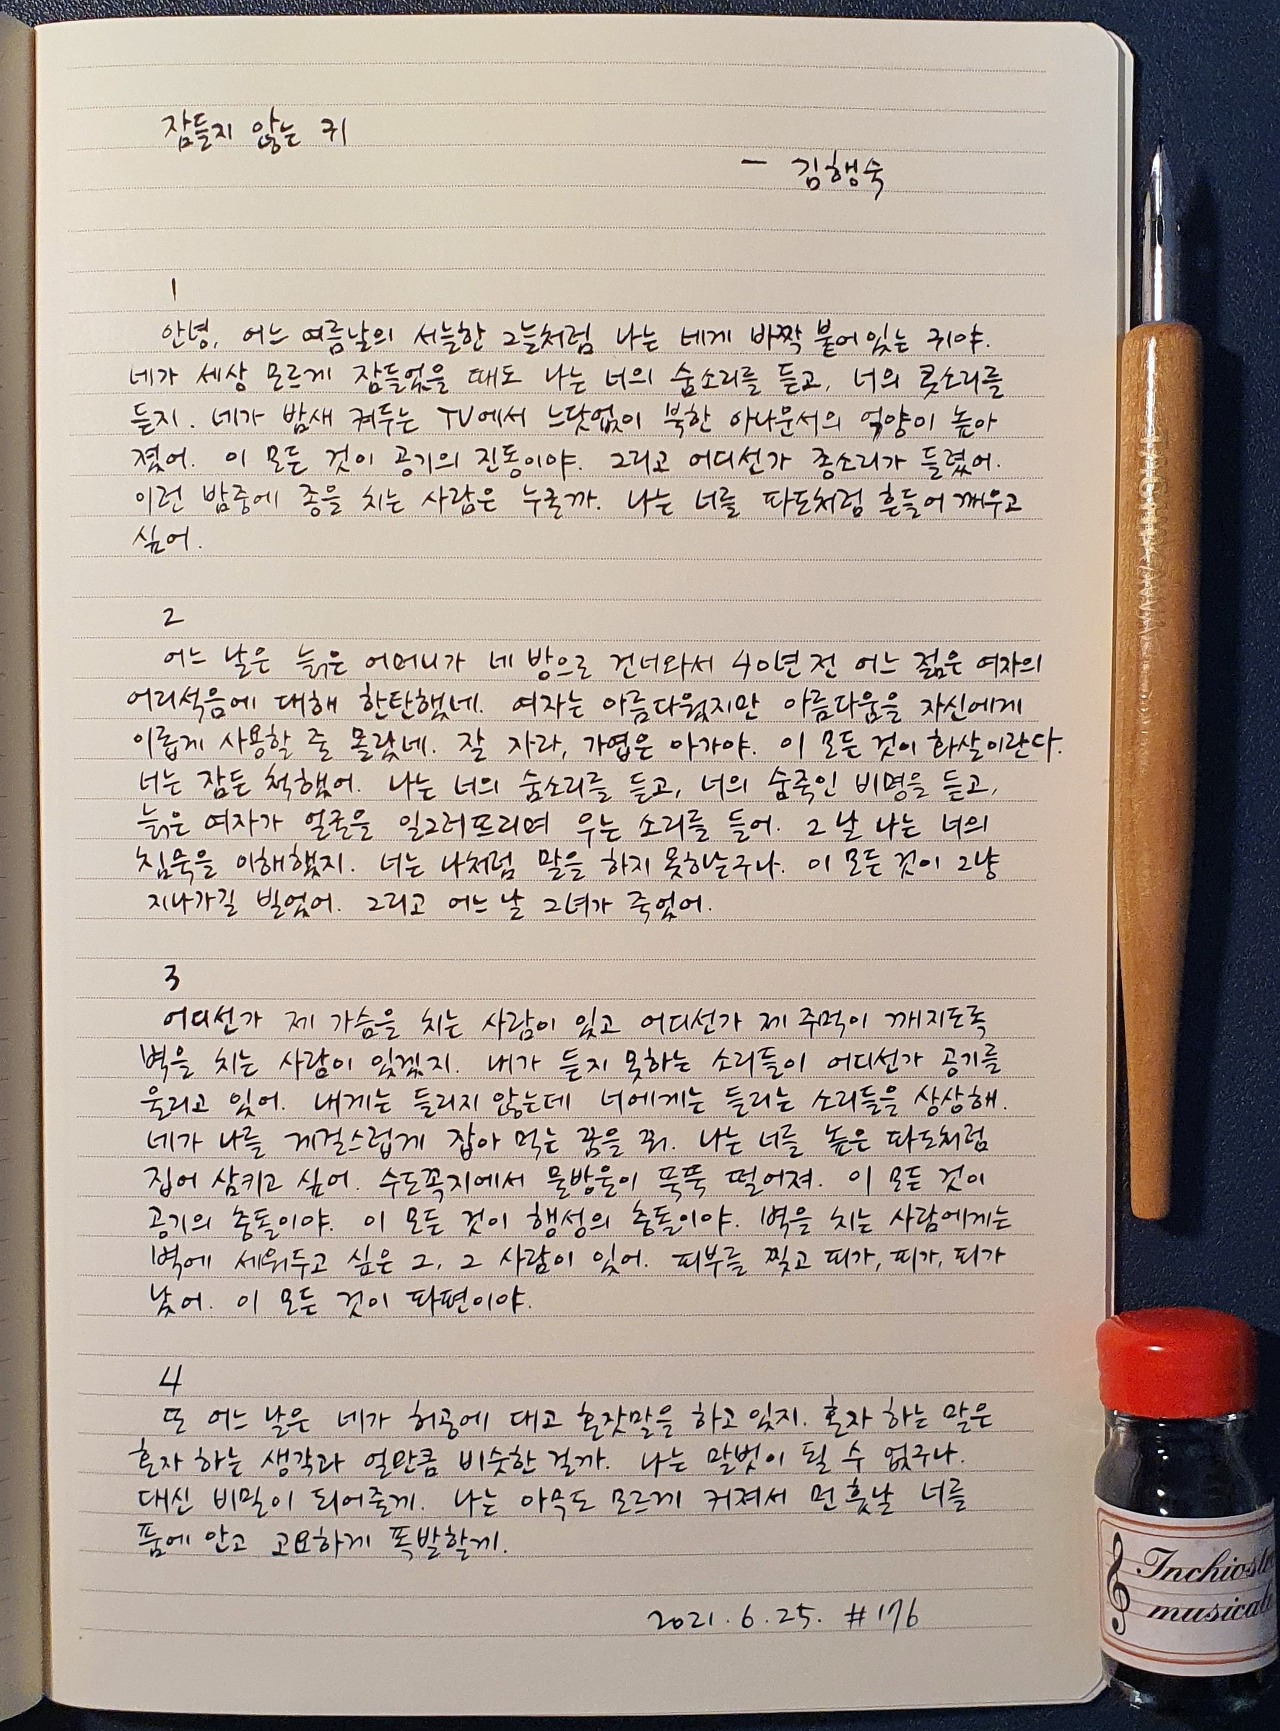 잠들지 않는 귀
- 김행숙
1
안녕, 어느 여름날의 서늘한 그늘처럼 나는 네게 바짝 붙어 있는 귀야.
네가 세상 모르게 잠들었을 때도 나는 너의 숨소리를 듣고, 너의 콧소리를
듣지. 네가 밤새 켜두는 TV에서 느닷없이 북한 아나운서의 억양이 높아
졌어. 이 모든 것이 공기의 진동이야. 그리고 어디선가 종소리가 들렸어.
이런 밤중에 종을 치는 사람은 누굴까. 나는 너를 파도처럼 흔들어 깨우고
싶어.
2
어느 날은 늙은 어머니가 네 방으로 건너와서 40년 전 어느 젊은 여자의
어리석음에 대해 한탄했네. 여자는 아름다웠지만 아름다움을 자신에게
이롭게 사용할 줄 몰랐네. 잘 자라, 가엾은 아가야. 이 모든 것이 화살이란다.
너는 잠든 척했어. 나는 너의 숨소리를 듣고, 너의 숨죽인 비명을 듣고,
늙은 여자가 얼굴을 일그러뜨리며 우는 소리를 들어. 그날 나는 너의
침묵을 이해했지. 너는 나처럼 말을 하지 못하는구나. 이 모든 것이 그냥
지나가길 빌었어. 그리고 어느 날 그녀가 죽었어.
3
어디선가 제 가슴을 치는 사람이 있고 어디선가 제 주먹이 깨지도록
벽을 치는 사람이 있겠지. 내가 듣지 못하는 소리들이 어디선가 공기를
울리고 있어. 내게는 들리지 않는데 너에게는 들리는 소리들을 상상해.
네가 나를 게걸스럽게 잡아 먹는 꿈을 꿔. 나는 너를 높은 파도처럼
집어 삼키고 싶어. 수도꼭지에서 물방울이 뚝뚝 떨어져. 이 모든 것이
공기의 충돌이야. 이 모든 것이 행성의 충돌이야. 벽을 치는 사람에게는
벽에 세워두고 싶은 그, 그 사람이 있어. 피부를 찢고 피가, 피가, 피가
났어. 이 모든 것이 파편이야.
4
또 어느 날은 네가 허공에 대고 혼잣말을 하고 있지. 혼자 하는 말은
혼자 하는 생각과 얼만큼 비슷한 걸까. 나는 말벗이 될 수 없구나.
대신 비밀이 되어줄게. 나는 아무도 모르게 커져서 먼 훗날 너를
품에 안고 고요하게 폭발할게.
2021.6.25. #176
Inchiostro
musicale